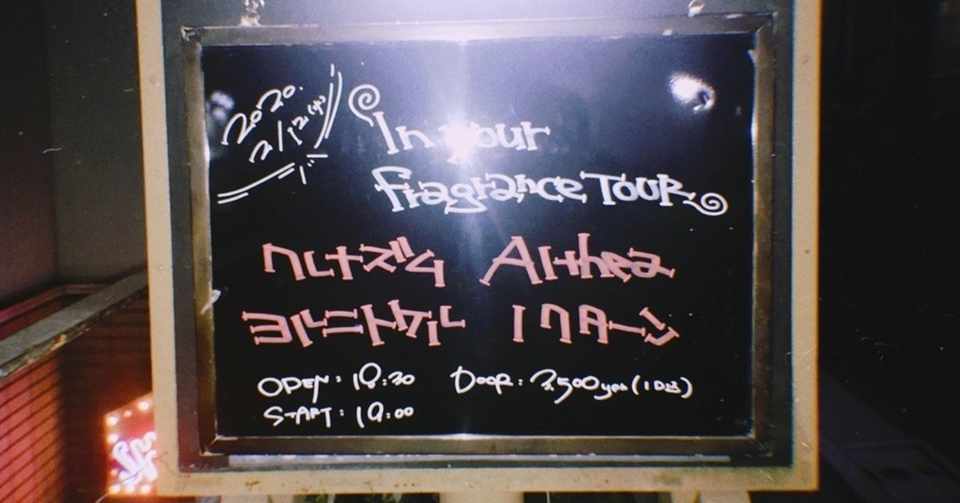 2020.
2/12(水)
In your
fragrance TOUR
クレナズム Althea
ヨルニトケル
OPEN: 18:30 DOOR: 3,500yen (1D込)
START: 19:00